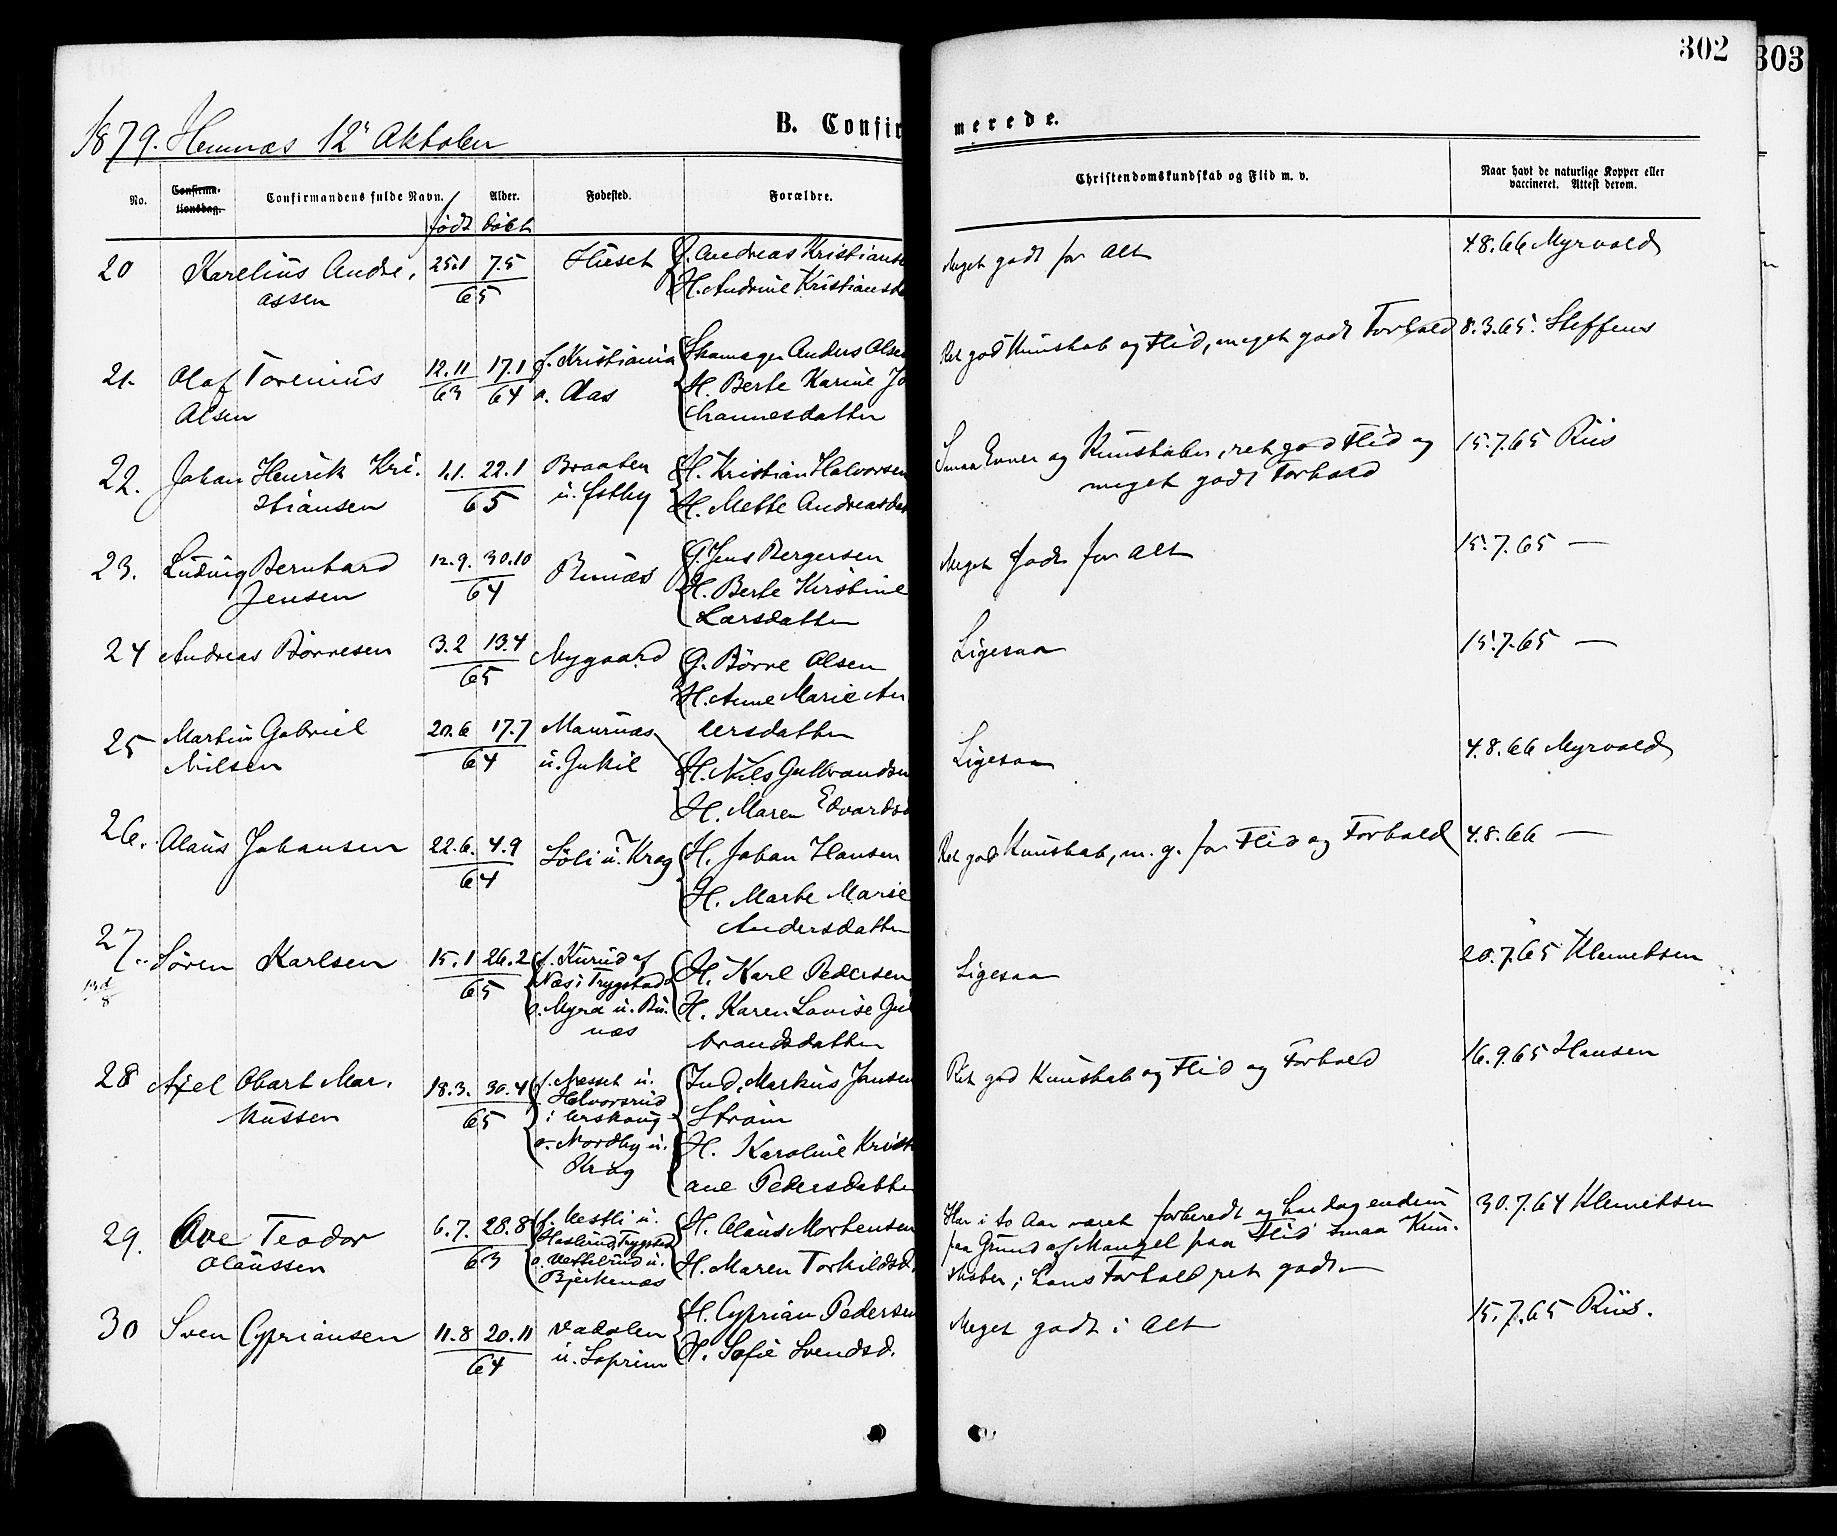 302
303
1879. Hemnæs 12te Oktober
B. Confir merede.
No.
Confirma-
tionsdag.
Confirmandens fulde Navn.
Alder.
Fødested.
Forældre.
Christendomskundskab og Flid m. v.
Naar havt de naturlige Kopper eller
vaccineret. Attest derom.
født døbt
20 Karelius Andre- 25.1 7.5 Huset G. Andreas Kristianse
assen 65 H. Andrine Kristiansda
Meget godt for Alt 4.8.66 Myrvold
21. Olaf Torenius 12.11 17.1 f. Kristiania Skomager Anders Olsen
Olsen 63 64 o. Aas H. Berte Karine Jo
hannesdatter
Ret god Kundskab og Flid, meget godt Forhold 8.3.65. Steffens
22. Johan Henrik Kri- 1.1. 22.1 Braaten H. Kristian Halvorsen
stiansen 65 u. Østby H. Mette Andreasdat
Smaa Evner og Kundskaber, ret god Flid og 15.7.65 Riis
meget godt Forhold
23. Ludvig Bernhard 12.9. 30.10 Bunæs G. Jens Bergersen
Jensen 64 H. Berte Kirstine
Larsdatter
Meget godt for Alt 15.7.65 —
24 Andreas Börresen 3.2 13.4 Nygaard G. Börre Olsen
65 H. Anne Marie An
dersdatter
Ligesaa 15.7.65 —
25 Martin Gabriel 20.6 17.7 Maurnæs
Nilsen 64 H. Nils Gulbrandsen
H. Maren Edvardsd
Ligesaa 4.8.66 Myrvold
26. Olaus Johansen 22.6. 4.9 Söli u. Krog H. Johan Hansen
64 H. Marte Marie
Andersdatter
Ret god Kundskab, m. g. for Flid og Forhold 4.8.66 —
27. Sören Karlsen 15.1 26.2 f. Kurud af H. Karl Pedersen
65 Næs i Trygstad H. Karen Lovise Gul
o. Myra u. Bu- brandsdatter
næs
Ligesaa 20.7.65 Klemetsen
28 Axel Obart Mar- 18.3. 30.4 f. Næsset u. Ind. Markus Jansen
kussen 65 Halvorsrud Ström
i Urskoug H. Karoline Kristi
o. Nordby u. ane Pedersdatter
Krog
Ret god Kundskab og Flid og Forhold 16.9.65 Hansen
29. Ove Teodor 6.7. 28.8 f. Vestli u. H. Olaus Mortensen
Olaussen 63 Haslund, Trygstad H. Maren Torkildsd.
o. Vettelrud u.
Bjerkenæs
Har i to Aar været forberedt og har dog endnu 30.7.64 Klemetsen
paa Grund af Mangel paa Flid smaa Kun-
skaber; hans Forhold ret godt
30 Sven Cypriansen 11.8 20.11 H. Cyprian Pedersen
64 u. Soprim H. Sofie Svendsd.
Meget godt i Alt 15.7.65 Riis.